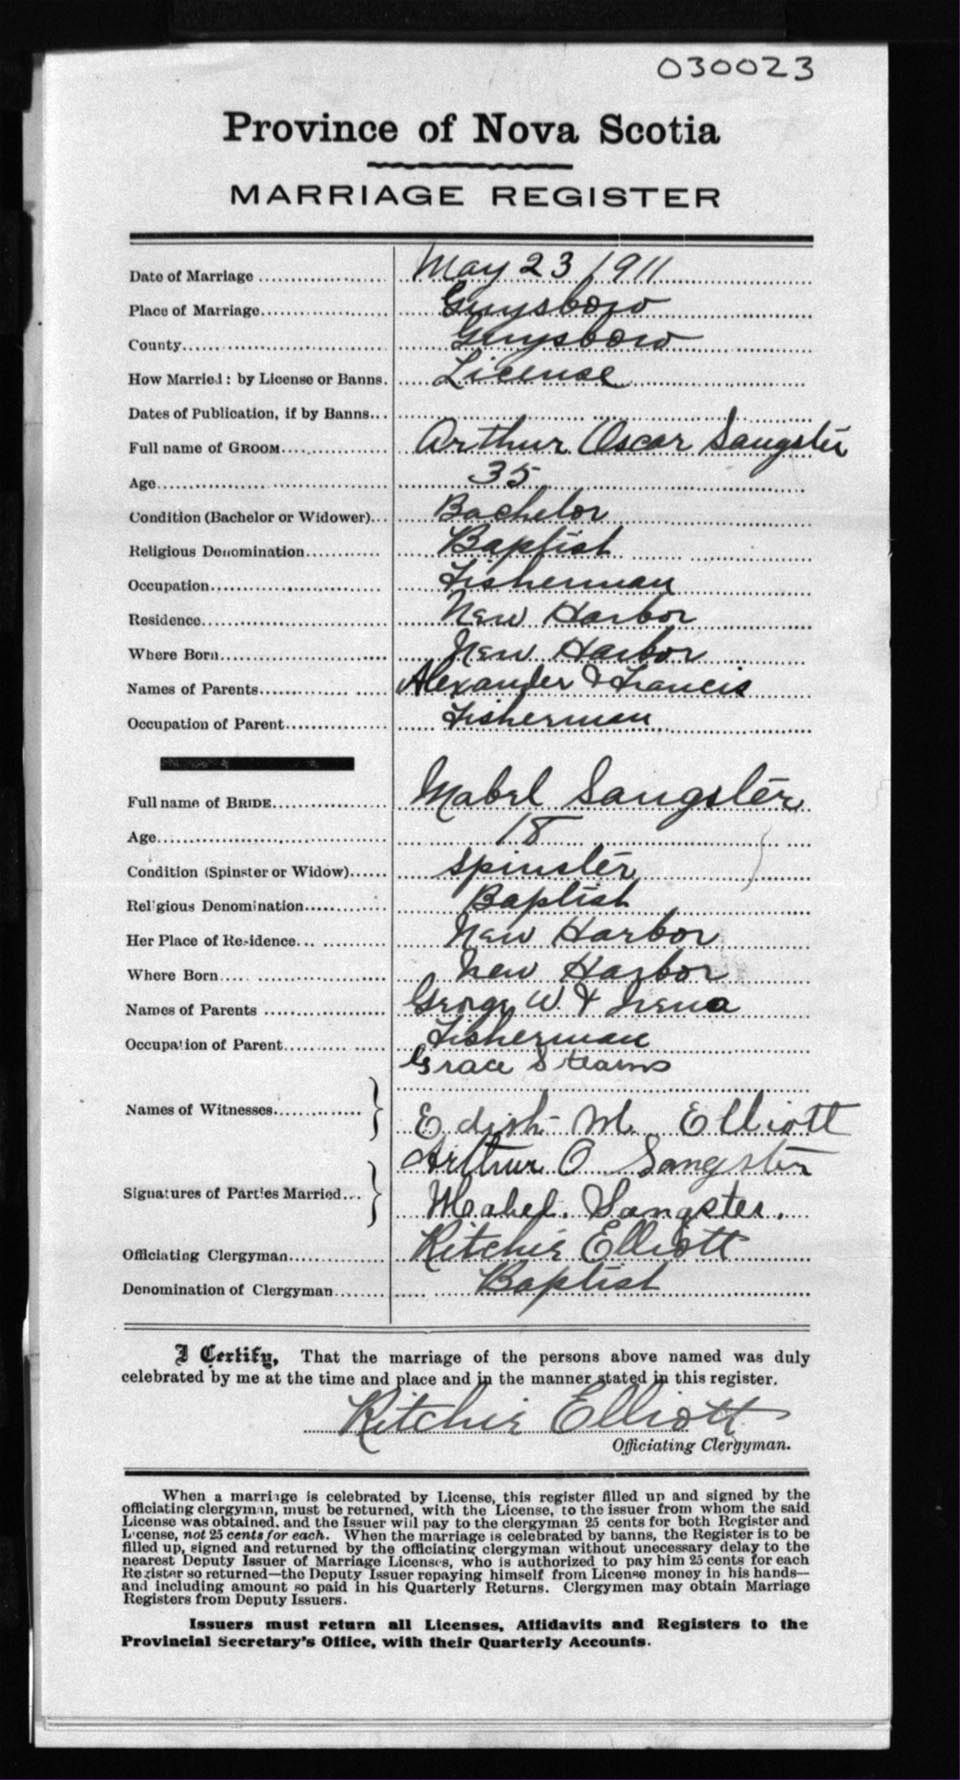 030023
Province of Nova Scotia
MARRIAGE REGISTER
Date of Marriage May 23 1911
Place of Marriage Guysboro
County Guysboro
How Married: by License or Banns. License
Dates of Publication, if by Banns
Full name of GROOM Arthur Oscar Sangster
Age 35
Condition (Bachelor or Widower) Bachelor
Religious Denomination Baptist
Occupation Fisherman
Residence New Harbor
Where Born New Harbor
Names of Parents Alexander & Francis
Occupation of Parent Fisherman
Full name of BRIDE Mabel Sangster
Age 18
Condition (Spinster or Widow) Spinster
Religious Denomination Baptist
Her Place of Residence New Harbor
Where Born New Harbor
Names of Parents George W. & Irena
Occupation of Parent Fisherman
Grace Stearns
Names of Witnesses Edith M. Elliott
Arthur O Sangster
Signatures of Parties Married Mabel. Sangster.
Officiating Clergyman Ritchie Elliott
Denomination of Clergyman Baptist
I Certify, That the marriage of the persons above named was duly
celebrated by me at the time and place and in the manner stated in this register.
Ritchie Elliott
Officiating Clergyman.
When a marriage is celebrated by License, this register filled up and signed by the
officiating clergyman, must be returned, with the License, to the issuer from whom the said
License was obtained, and the Issuer will pay to the clergyman 25 cents for both Register and
License, not 25 cents for each. When the marriage is celebrated by banns, the Register is to be
filled up, signed and returned by the officiating clergyman without unecessary delay to the
nearest Deputy Issuer of Marriage Licenses, who is authorized to pay him 25 cents for each
Register so returned—the Deputy Issuer repaying himself from License money in his hands—
and including amount so paid in his Quarterly Returns. Clergymen may obtain Marriage
Registers from Deputy Issuers.
Issuers must return all Licenses, Affidavits and Registers to the
Provincial Secretary's Office, with their Quarterly Accounts.